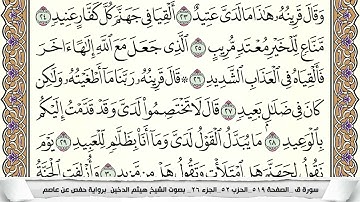 وَقَالَ قَرِينُهُۥ هَٰذَا مَا لَدَىَّ عَتِيدٌ ٢٣ أَلْقِيَا فِى جَهَنَّمَ كُلَّ كَفَّارٍ عَنِيدٍ ٢٤
مَّنَّاعٍ لِّلْخَيْرِ مُعْتَدٍ مُّرِيبٍ ٢٥ ٱلَّذِى جَعَلَ مَعَ ٱللَّهِ إِلَٰهًا ءَاخَرَ
فَأَلْقِيَاهُ فِى ٱلْعَذَابِ ٱلشَّدِيدِ ٢٦ ۞ قَالَ قَرِينُهُۥ رَبَّنَا مَآ أَطْغَيْتُهُۥ وَلَٰكِن
كَانَ فِى ضَلَٰلٍۭ بَعِيدٍ ٢٧ قَالَ لَا تَخْتَصِمُوا۟ لَدَىَّ وَقَدْ قَدَّمْتُ إِلَيْكُم
بِٱلْوَعِيدِ ٢٨ مَا يُبَدَّلُ ٱلْقَوْلُ لَدَىَّ وَمَآ أَنَا۠ بِظَلَّٰمٍ لِّلْعَبِيدِ ٢٩ يَوْمَ
نَقُولُ لِجَهَنَّمَ هَلِ ٱمْتَلَأْتِ وَتَقُولُ هَلْ مِن مَّزِيدٍ ٣٠ وَأُزْلِفَتِ ٱلْجَنَّةُ
سورة ق _ الصفحة ٥١٩ _ الحزب ٥٢ _ الجزء ٢٦ _ بصوت الشيخ هيثم الدخين _ برواية حفص عن عاصم